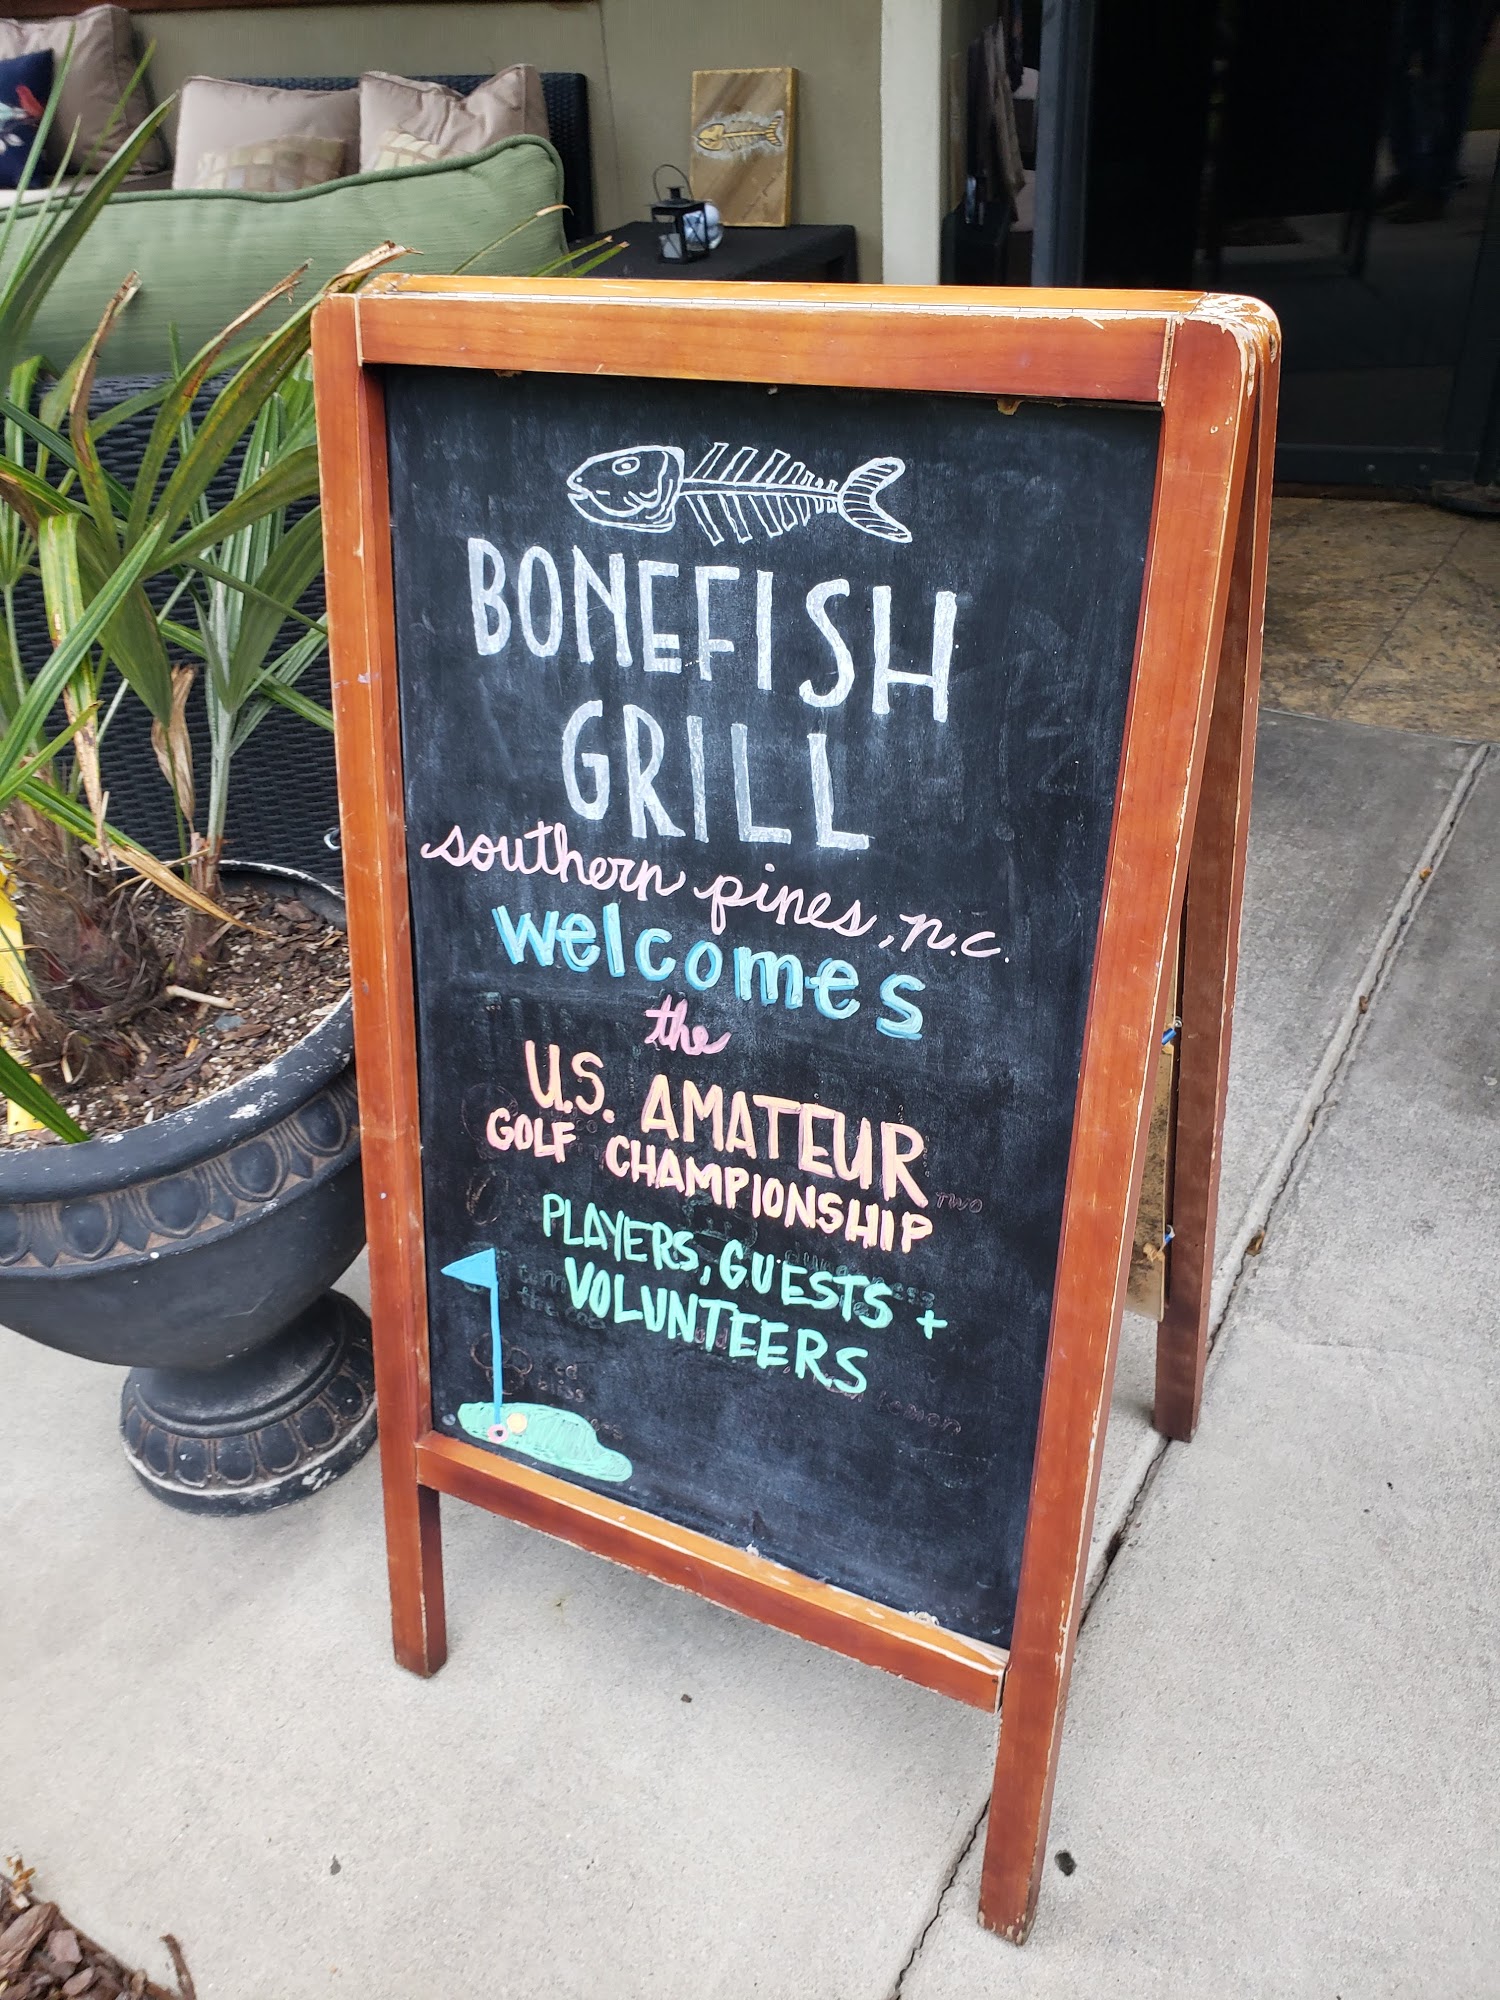 BONEFISH
GRILL
southern pines, n.c.
welcomes
the
U.S. AMATEUR
GOLF CHAMPIONSHIP
PLAYERS, GUESTS +
VOLUNTEERS
TWO